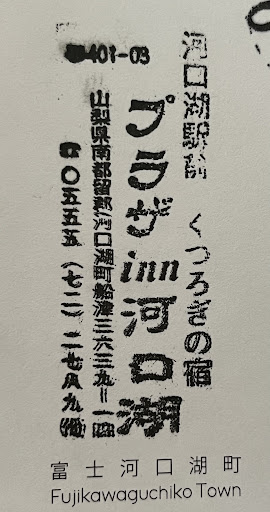 河口湖駅前 くつろぎの宿
プラザinn河口湖
401-03
山梨県南都留郡河口湖町船津三六三九=一四
☎〇五五五(七二)二七八九
富士河口湖町
Fujikawaguchiko Town